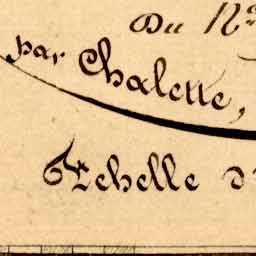 Du N.
par Chalette,
Echelle d